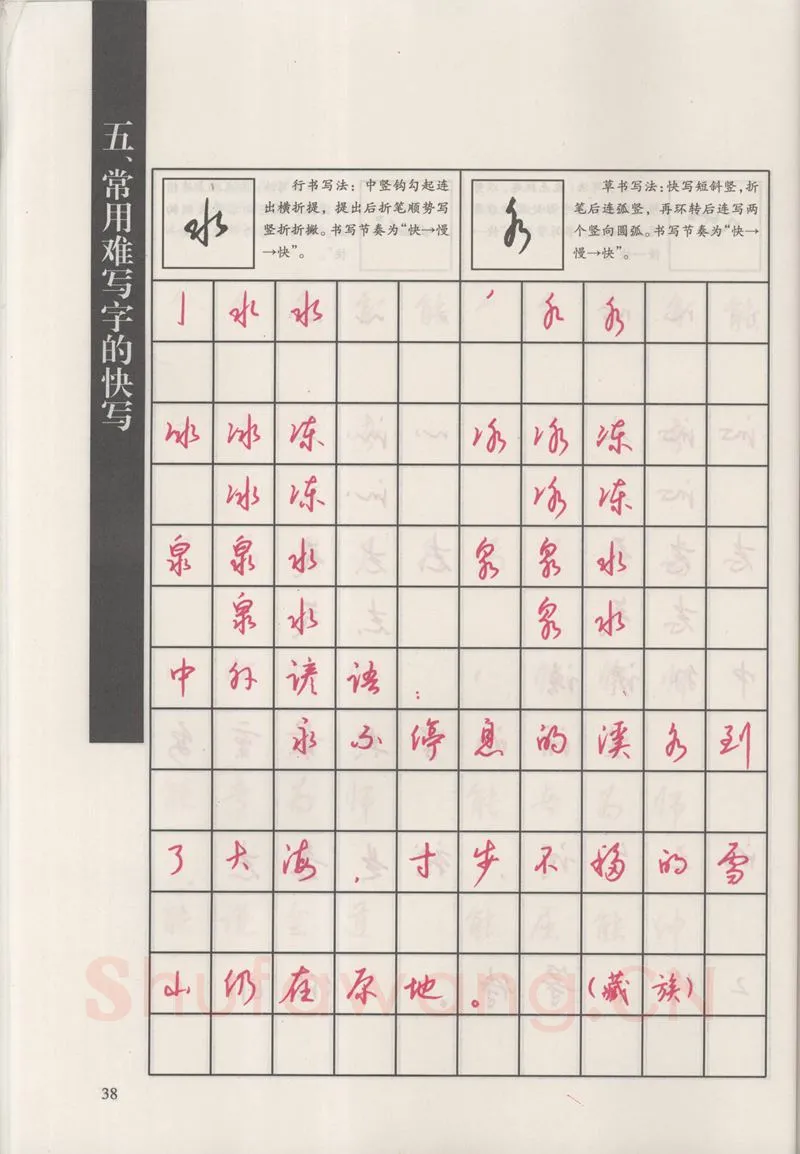 五、常用难写字的快写
水
行书写法：中竖钩勾起连
出横折提，提出后折笔顺势写
竖折折撇。书写节奏为“快→慢
→快”。
水
草书写法：快写短斜竖，折
笔后连弧竖，再环转后连写两
个竖向圆弧。书写节奏为“快→
慢→快”。
丨 水 水 水 水
冰 冰 冻 冰 冰 冻
冰 冻 冰 冻
泉 泉 水 泉 泉 水
泉 水 泉 水
中外谚语：
永不停息的溪水到
了大海，寸步不移的雪
山仍在原地。（藏族）
Shufawang.CN
38